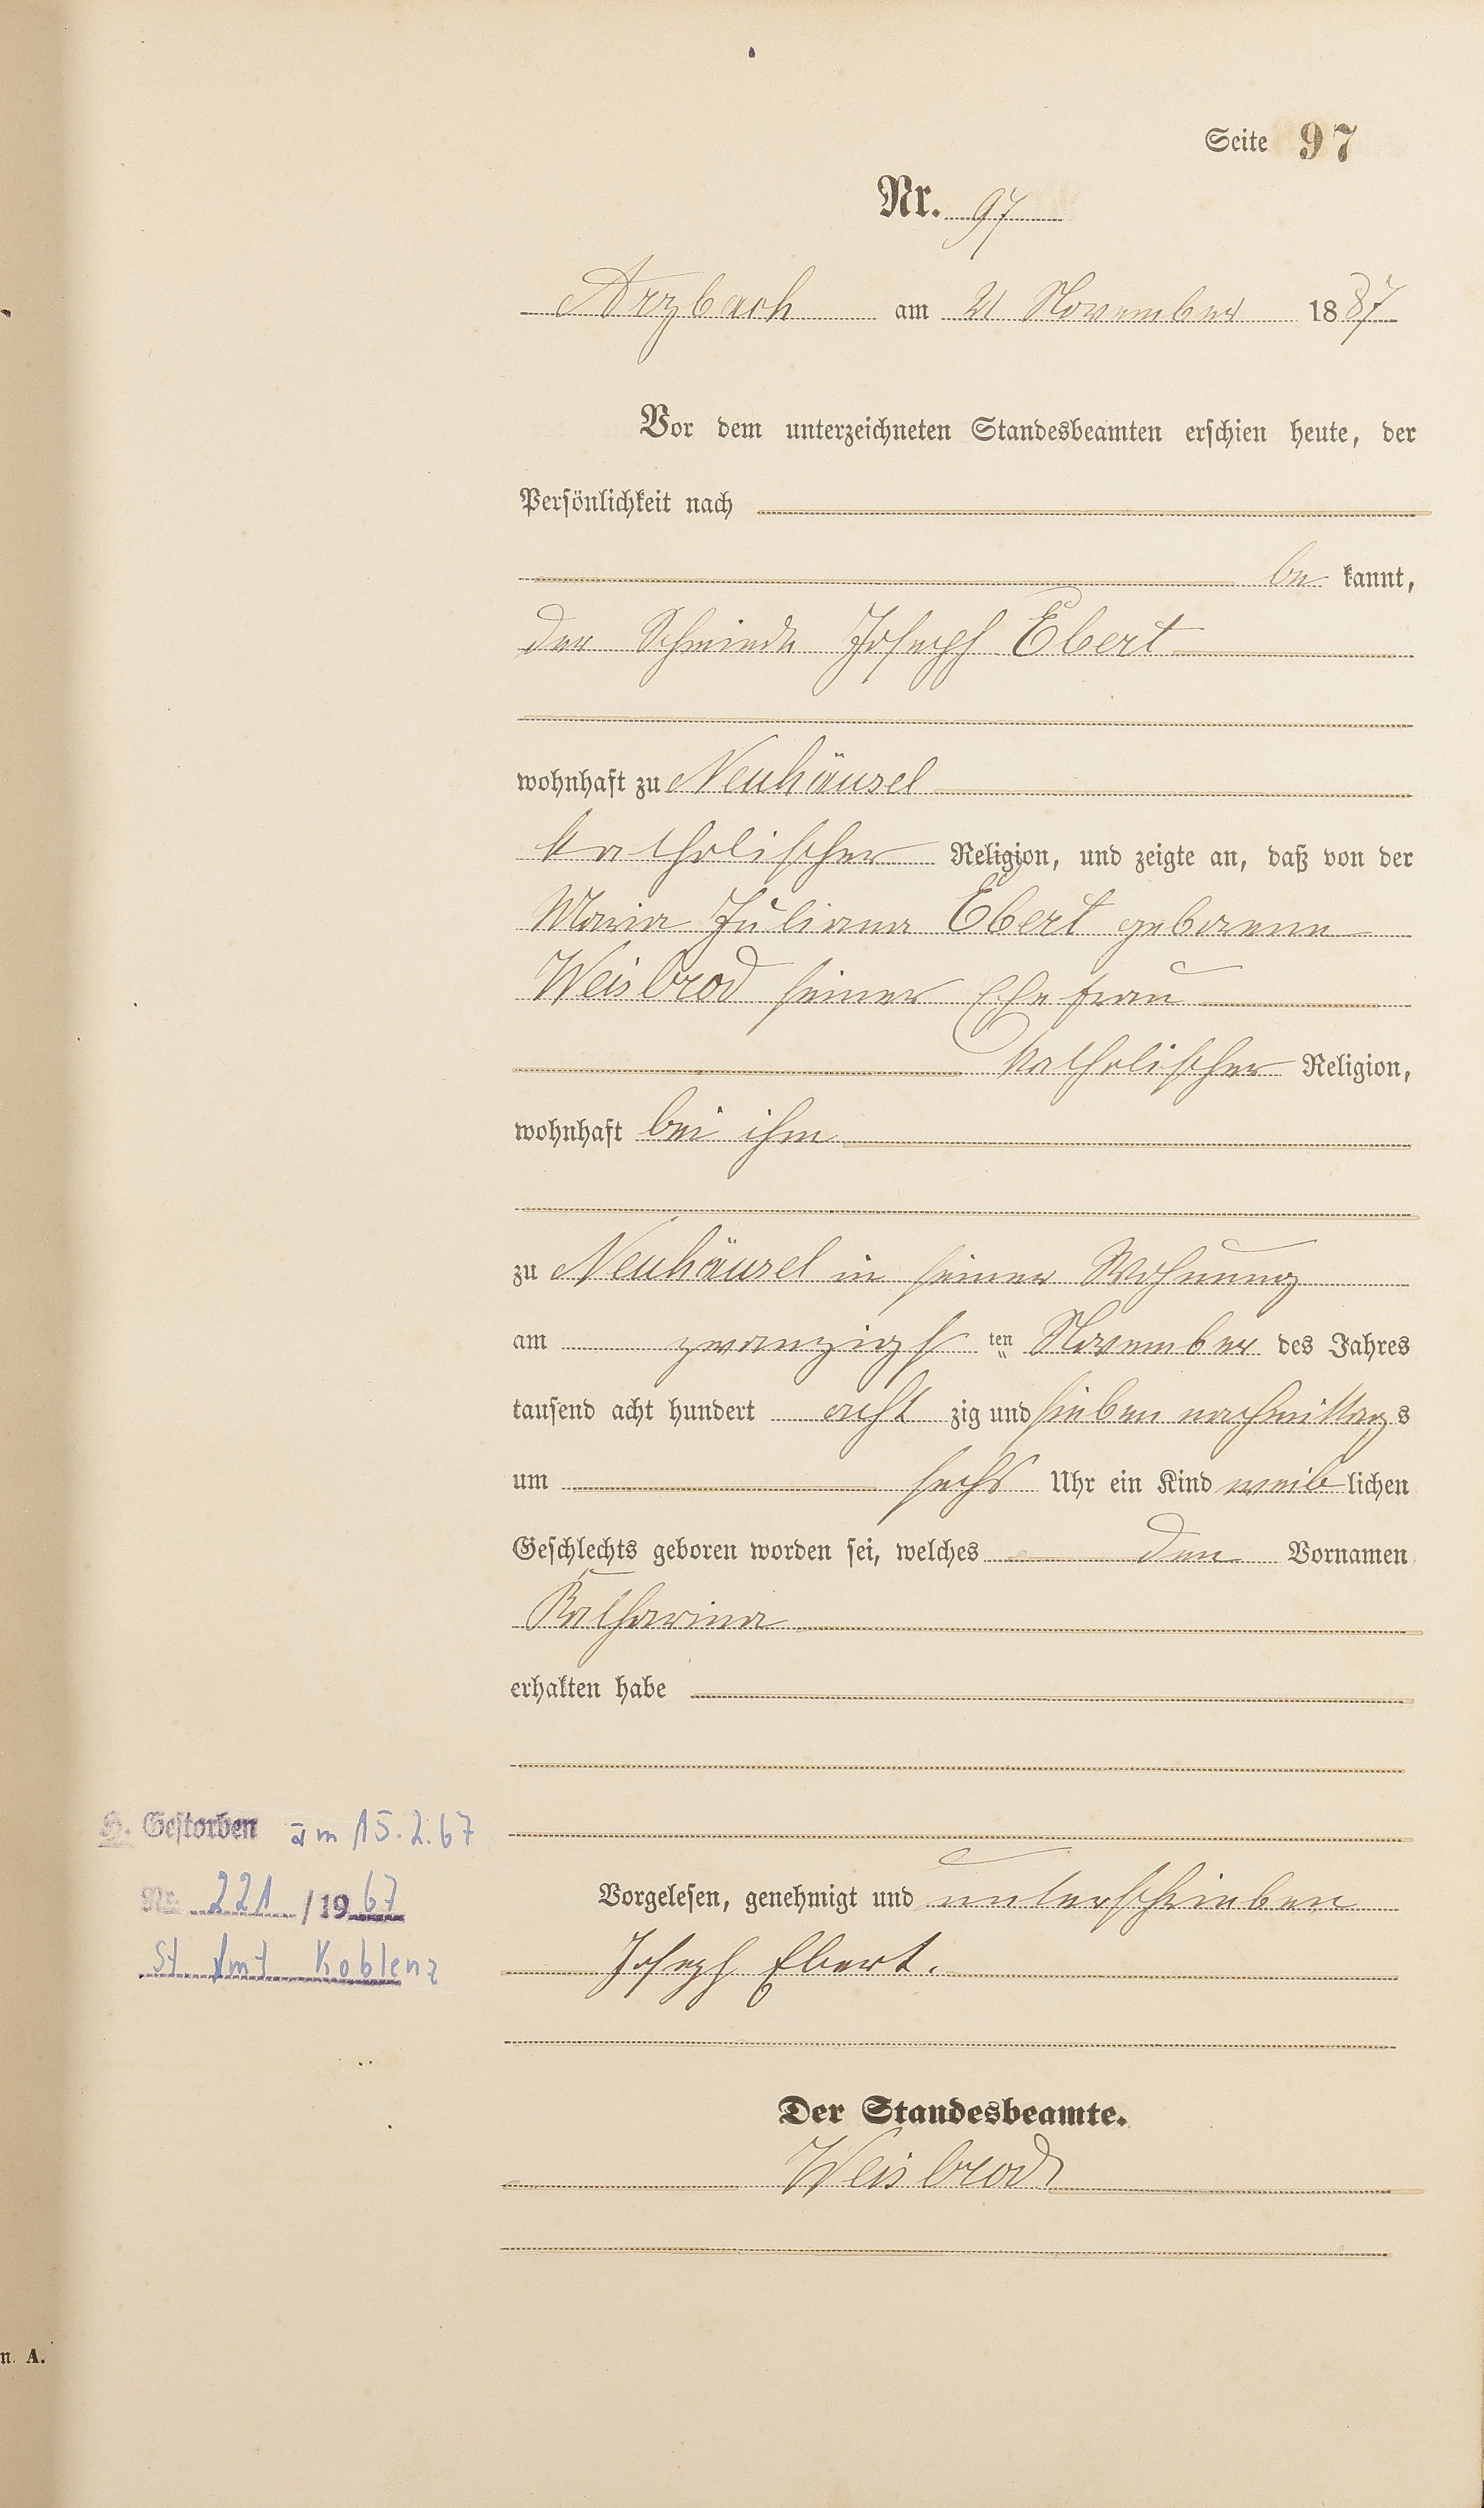 Seite 97
Nr. 97
Arzbach am 21 November 1887
Vor dem unterzeichneten Standesbeamten erschien heute, der
Persönlichkeit nach
be kannt,
der Schmiede Joseph Ebert
wohnhaft zu Neuhäusel
katholischer Religion, und zeigte an, daß von der
Maria Juliana Ebert geborene
Weisbrod seiner Ehefrau
katholischer Religion,
wohnhaft bei ihm
zu Neuhäusel in seiner Wohnung
am zwanzigs ten November des Jahres
tausend acht hundert acht zig und sieben nachmittags
um sechs Uhr ein Kind weib lichen
Geschlechts geboren worden sei, welches den Vornamen
Katharina
erhalten habe
H. Gestorben am 15.2.67
Nr. 221 /1967
St. Amt Koblenz
Vorgelesen, genehmigt und unterschrieben
Joseph Ebert.
Der Standesbeamte.
Weisbrod
n. A.